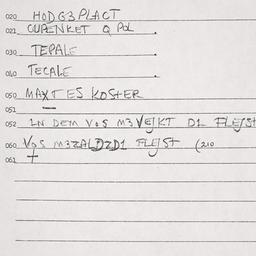 020 HODG3PLACT
021 OUPENKET Q POL .
030 TEPALE .
040 TECALE .
050 MAXTES KOSTER
051 —
052 LN DEM VOS M3VEJKT D1 FLEJST
060 VOS M3ZALDZD1 FLEJST (210
061 +